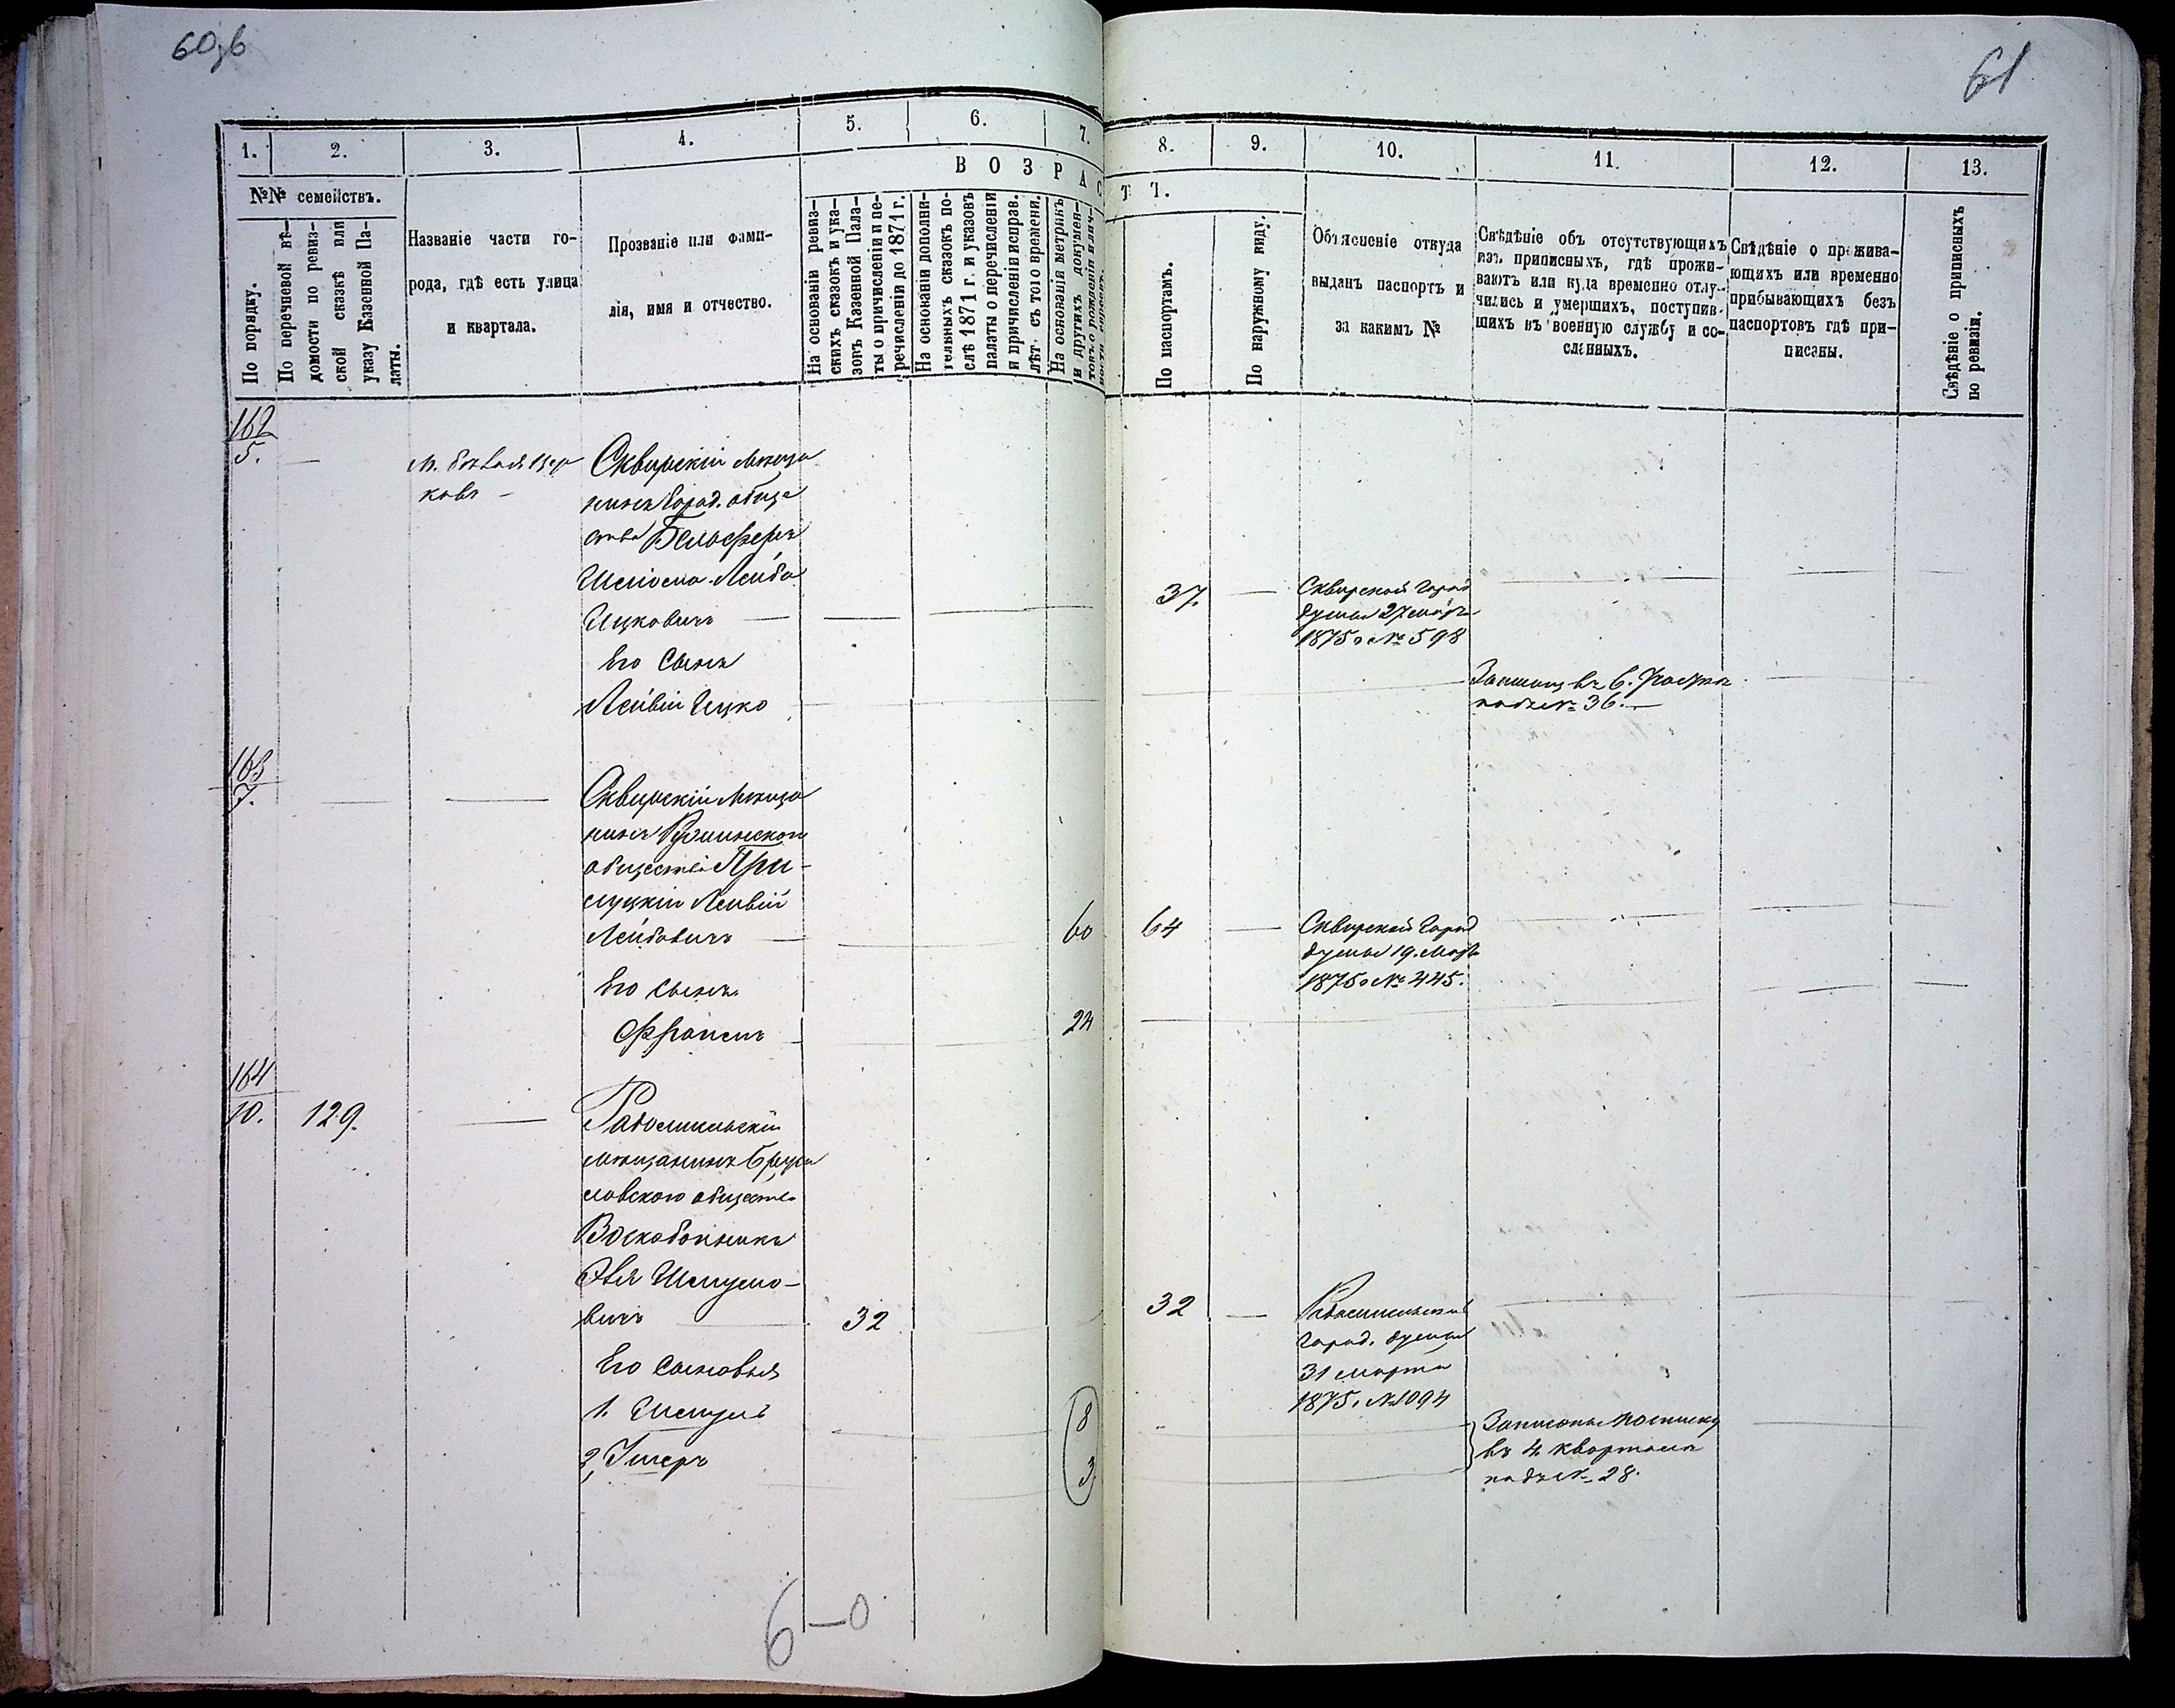 60об
61
1.
2.
3.
4.
5.
6.
7.
8.
9.
10.
11.
12.
13.
№№ семействъ.
В О З Р А С
Т Ъ.
По порядку.
По перечневой вѣ-
домости по ревиз-
ской сказкѣ или
указу Казенной Па-
латы.
Названіе части го-
рода, гдѣ есть улица
и квартала.
Прозваніе или фами-
лія, имя и отчество.
На основаніи ревиз-
скихъ сказокъ и ука-
зовъ Казенной Пала-
ты о причисленіи и пе-
речисленіи до 1871 г.
На основаніи дополни-
тельныхъ сказокъ по-
слѣ 1871 г. и указовъ
палаты о перечисленіи
и причисленіи исправ.
лѣт. съ того времени.
На основаніи метрикъ
и другихъ докумен-
товъ о рожденіи
По паспортамъ.
По наружному виду.
Объясненіе откуда
выданъ паспортъ и
за какимъ №
Свѣдѣніе объ отсутствующихъ
изъ приписныхъ, гдѣ прожи-
ваютъ или куда временно отлу-
чились и умершихъ, поступив-
шихъ въ военную службу и со-
сланныхъ.
Свѣдѣніе о прожива-
ющихъ или временно
прибывающихъ безъ
паспортовъ гдѣ при-
писаны.
Свѣдѣніе о приписныхъ
по ревизіи.
162
5.
Сквирскій мѣща
нинъ
общe
ства
Лейба
Ицковичъ
37.
Сквирской Город
думы 27
1875 г № 598
Его Сынъ
Лейвій Ицко
въ 6.
подъ № 36.
163
7.
Сквирскій мѣща
нинъ Ружинскаго
общества При-
луцкій Лейвій
Лейбовичъ
60
64
Сквирской Город
думы 19. Мар
1875 г № 445.
Его сынъ
24
164
10.
129.
Радомысльскій
мѣщанинъ Бруси
ловскаго общества
Воскобойникъ
Шмулио-
вичъ
32
32
Радомысльской
город. думы
31 марта
1875 г. № 1094
Его сыновья
1. Шмуль
8
2, Ушеръ
3
Записаны
въ 4 кварталѣ
подъ № 28.
6-0